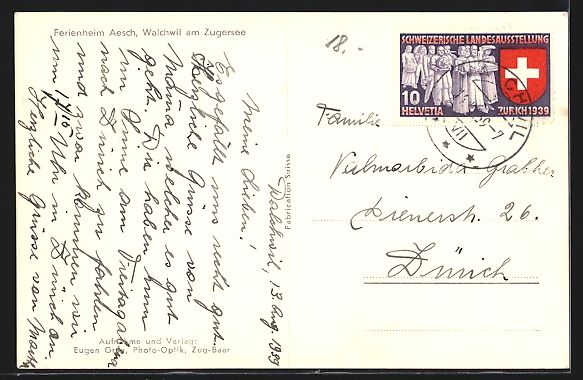 Ferienheim Aesch, Walchwil am Zugersee
18.-
SCHWEIZERISCHE LANDESAUSSTELLUNG
10
HELVETIA ZURICH 1939
Familie
Dienerstr. 26.
Zürich
Fabrication Suisse
Walchwil, 13. Aug. 1939
Meine Lieben!
Es gefällt uns recht gut.
Herzliche Grüsse von
Mama welcher es gut
geht. Wir haben nun
im Sinne am Freitagabend
nach Zürich zu fahren
und zwar kommen wir
um Uhr in Zürich an
Herzliche Grüsse von
Aufnahme und Verlag:
Eugen Grau, Photo-Optik, Zug-Baar